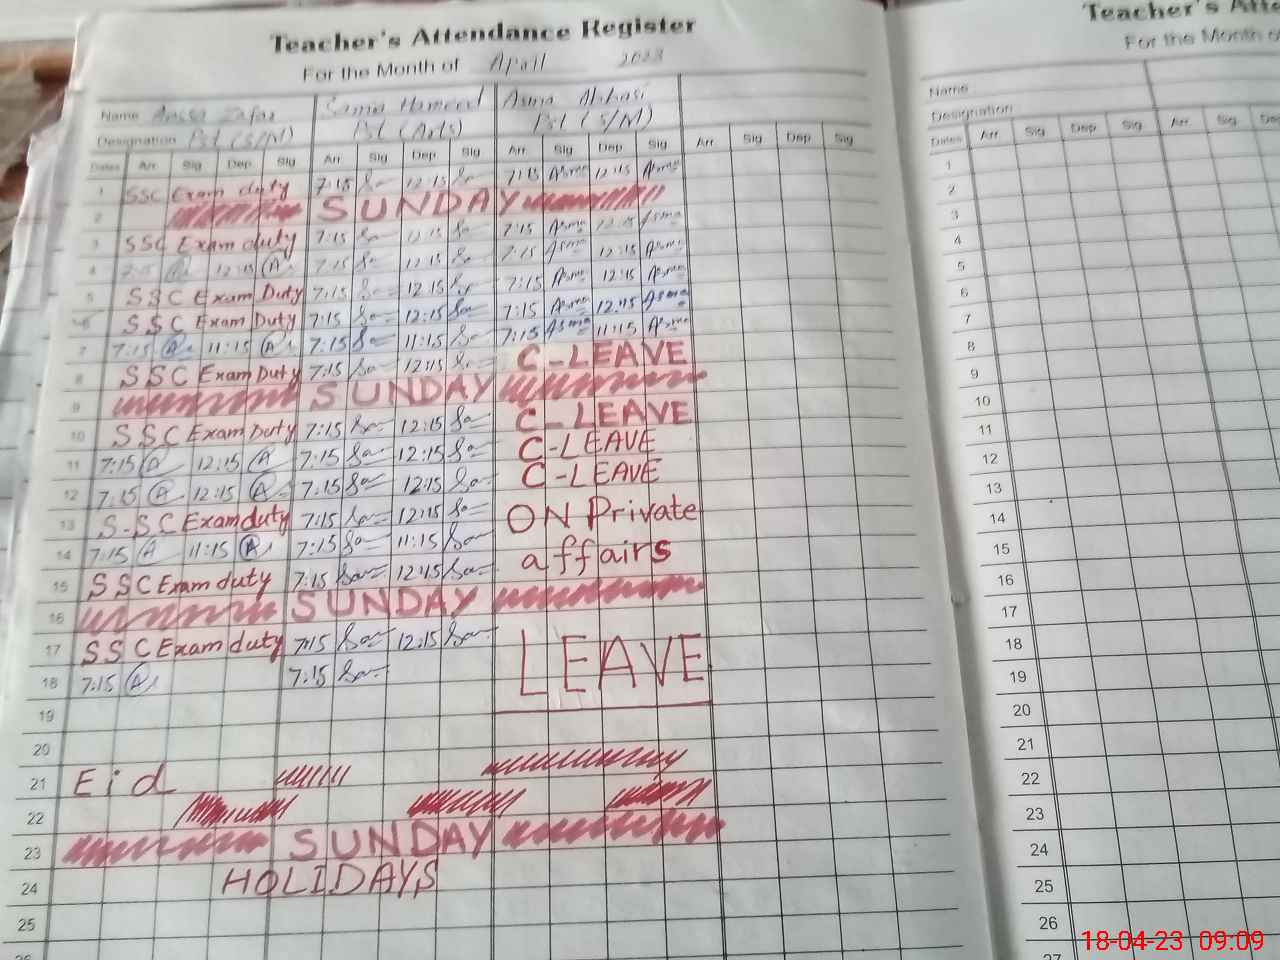 Teacher's Attendance Register
For the Month of April 2023
Name Anssa Zafar Samia Hameed Asma Abbasi
Designation Pst (S/M) Pst (Arts) Pst (S/M)
Dates Arr. Sig Dep Sig Arr. Sig Dep Sig Arr. Sig Dep Sig Arr. Sig Dep Sig
1 SSC Exam duty 7:15 Sa 12:15 Sa 7:15 Asma 12:15 Asma
2 SUNDAY
3 SSC Exam duty 7:15 Sa 12:15 Sa 7:15 Asma 12:15 Asma
4 7:15 A 12:15 A 7:15 Sa 12:15 Sa 7:15 Asma 12:15 Asma
5 SSC Exam Duty 7:15 Sa 12:15 Sa 7:15 Asma 12:15 Asma
6 SSC Exam Duty 7:15 Sa 12:15 Sa 7:15 Asma 12:15 Asma
7 7:15 A 11:15 A 7:15 Sa 11:15 Sa 7:15 Asma 11:15 Asma
8 SSC Exam Duty 7:15 Sa 12:15 Sa C-LEAVE
9 SUNDAY
10 SSC Exam Duty 7:15 Sa 12:15 Sa C-LEAVE
11 7:15 A 12:15 A 7:15 Sa 12:15 Sa C-LEAVE
12 7:15 A 12:15 A 7:15 Sa 12:15 Sa C-LEAVE
13 S-SC Exam duty 7:15 Sa 12:15 Sa ON Private
14 7:15 A 11:15 A 7:15 Sa 11:15 Sa affairs
15 SSC Exam duty 7:15 Sa 12:15 Sa
16 SUNDAY
17 SSC Exam duty 7:15 Sa 12:15 Sa LEAVE
18 7:15 A 7:15 Sa
19
20
21 Eid
22
23 SUNDAY
24 HOLIDAYS
25
Teacher's Atte
For the Month of
Name
Designation
Dates Arr. Sig Dep Sig Arr. Sig De
1
2
3
4
5
6
7
8
9
10
11
12
13
14
15
16
17
18
19
20
21
22
23
24
25
26
27
18-04-23 09:09